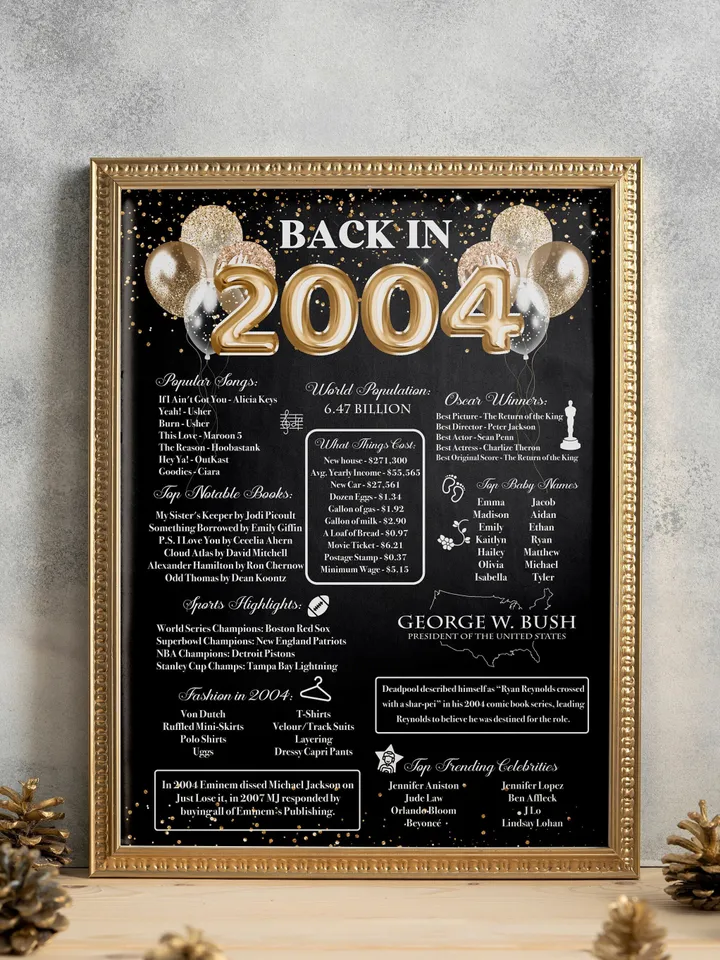 BACK IN
2004
Popular Songs:
If I Ain't Got You - Alicia Keys
Yeah! - Usher
Burn - Usher
This Love - Maroon 5
The Reason - Hoobastank
Hey Ya! - OutKast
Goodies - Ciara
World Population:
6.47 BILLION
Oscar Winners:
Best Picture - The Return of the King
Best Director - Peter Jackson
Best Actor - Sean Penn
Best Actress - Charlize Theron
Best Original Score - The Return of the King
What Things Cost:
New house - $271,300
Avg. Yearly Income - $55,565
New Car - $27,561
Dozen Eggs - $1.34
Gallon of gas - $1.92
Gallon of milk - $2.90
A Loaf of Bread - $0.97
Movie Ticket - $6.21
Postage Stamp - $0.37
Minimum Wage - $5.15
Top Notable Books:
My Sister's Keeper by Jodi Picoult
Something Borrowed by Emily Giffin
P.S. I Love You by Cecelia Ahern
Cloud Atlas by David Mitchell
Alexander Hamilton by Ron Chernow
Odd Thomas by Dean Koontz
Top Baby Names
Emma Jacob
Madison Aidan
Emily Ethan
Kaitlyn Ryan
Hailey Matthew
Olivia Michael
Isabella Tyler
Sports Highlights:
World Series Champions: Boston Red Sox
Superbowl Champions: New England Patriots
NBA Champions: Detroit Pistons
Stanley Cup Champs: Tampa Bay Lightning
GEORGE W. BUSH
PRESIDENT OF THE UNITED STATES
Fashion in 2004:
Von Dutch T-Shirts
Ruffled Mini-Skirts Velour/Track Suits
Polo Shirts Layering
Uggs Dressy Capri Pants
Deadpool described himself as "Ryan Reynolds crossed
with a shar-pei" in his 2004 comic book series, leading
Reynolds to believe he was destined for the role.
In 2004 Eminem dissed Michael Jackson on
Just Lose it, in 2007 MJ responded by
buying all of Eminem's Publishing.
Top Trending Celebrities
Jennifer Aniston Jennifer Lopez
Jude Law Ben Affleck
Orlando Bloom J Lo
Beyoncé Lindsay Lohan